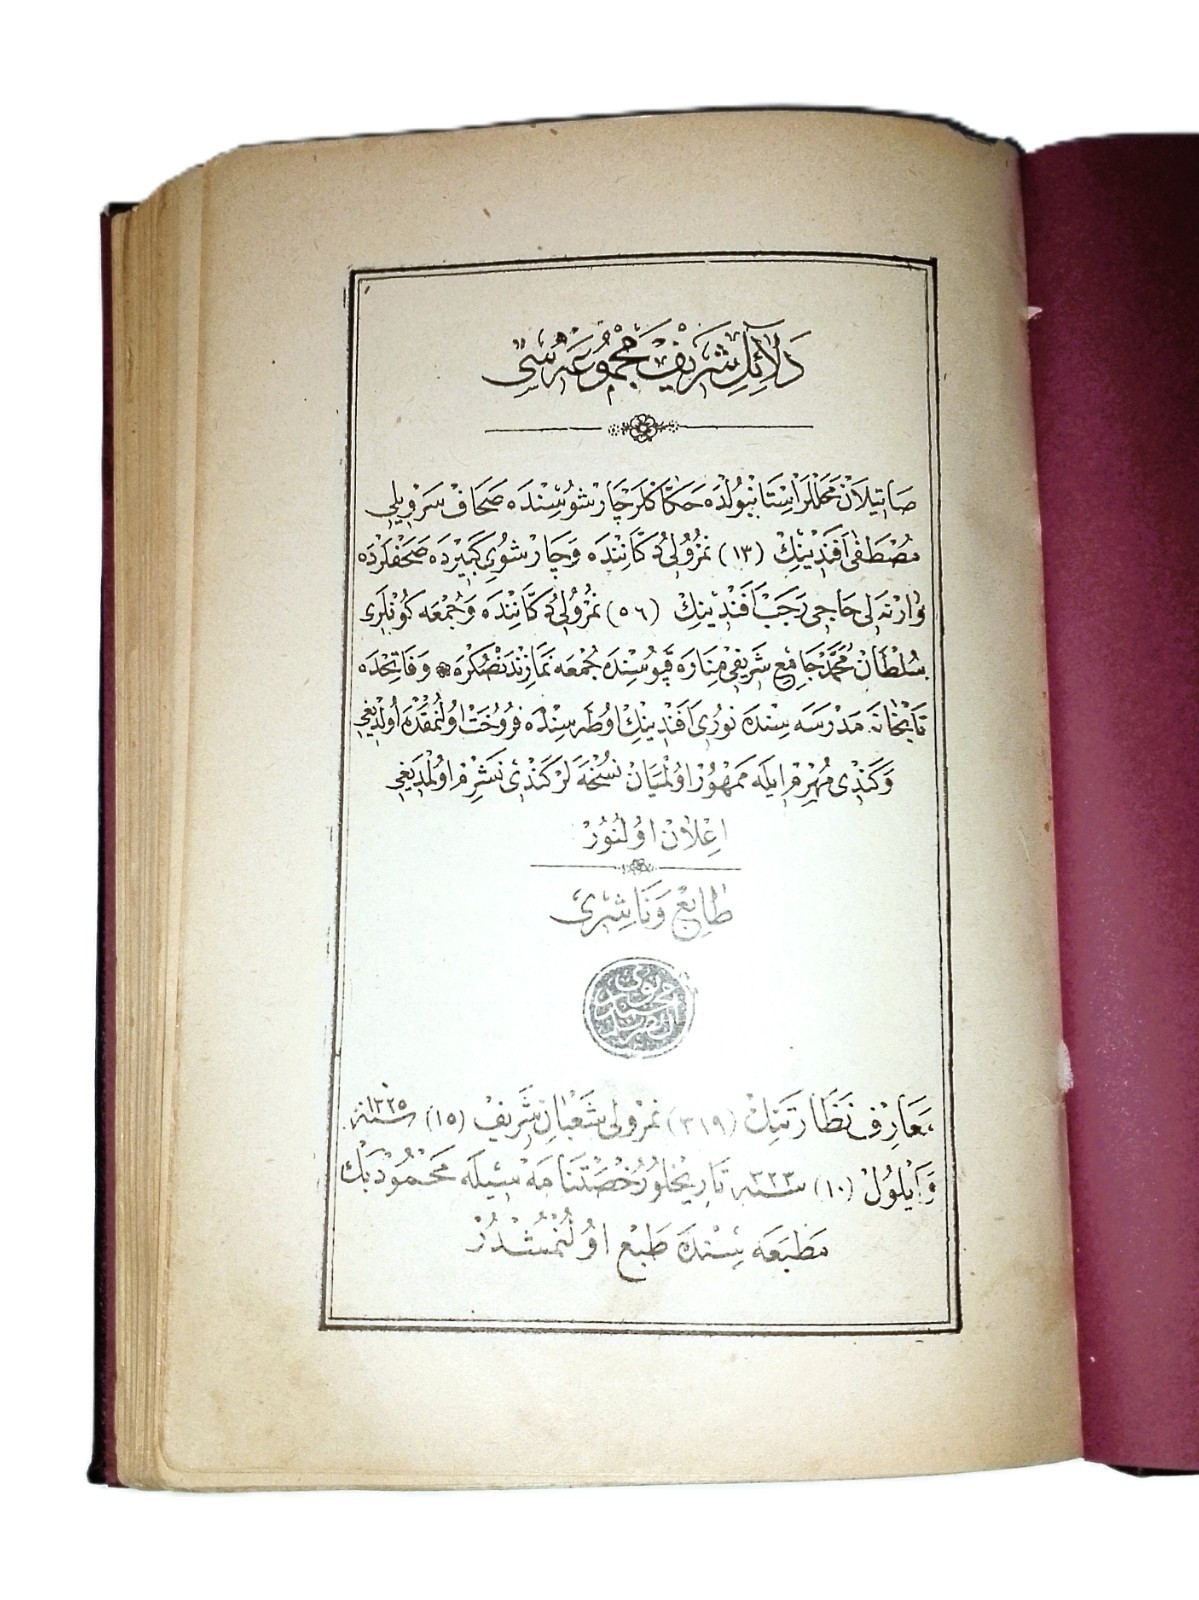 دَلَائِلِ شَرِيفْ مَجْمُوعَه سِی
صَاتِيلَانْ مَحَللَرْ اِسْتَانْبُولْدَه حَكَّاكْلَرْ چَارْشُوسِنْدَه صَحَافْ سَرَوِيلِی
مُصْطَفٰی اَفَنْدِينِكْ (١٣) نُمْرُولِی دُكَّانِنْدَه وَچَارْشُوِیِ كَبِيرْدَه صَحَفْلَرْدَه
وَارْنَه لِی حَاجِی رَجَبْ اَفَنْدِينِكْ (٥٦) نُمْرُولِی دُكَّانِنْدَه وَجُمْعَه كُونْلَرِی
سُلْطَانْ مُحَمَّدْ جَامِعِ شَرِيفِی مِنَارَه قَپُوسِنْدَه جُمْعَه نَمَازِنْدَنْصُكْرَه وَفَاتِحْدَه
تَابْخَانَه مَدْرَسَه سِنْدَه نُورِی اَفَنْدِينِكْ اُوطَه سِنْدَه فُرُوخْتْ اُولُنْمَقْدَه اُولْدِيغِی
وَكَنْدِی مُهْرِمْ ايلَه مَمْهُورْ اُولْمَيَانْ نُسْخَه لَرْ كَنْدِی نَشْرِمْ اُولْمَدِيغِی
اِعْلَانْ اُولُنُورْ
طَابِعْ وَنَاشِرِی
مَعَارِفْ نَظَارَتِنِكْ (٣١٩) نُمْرُولِی شَعْبَانِ شَرِيفْ (١٥) سنه ١٣٢٥
وَايْلُولْ (١٠) سنه ٣٢٣ تَارِيخْلُو رُخْصَتْنَامَه سِيلَه مَحْمُودْ بَكْ
مَطْبَعَه سِنْدَه طَبْعْ اُولُنْمُشْدُرْ